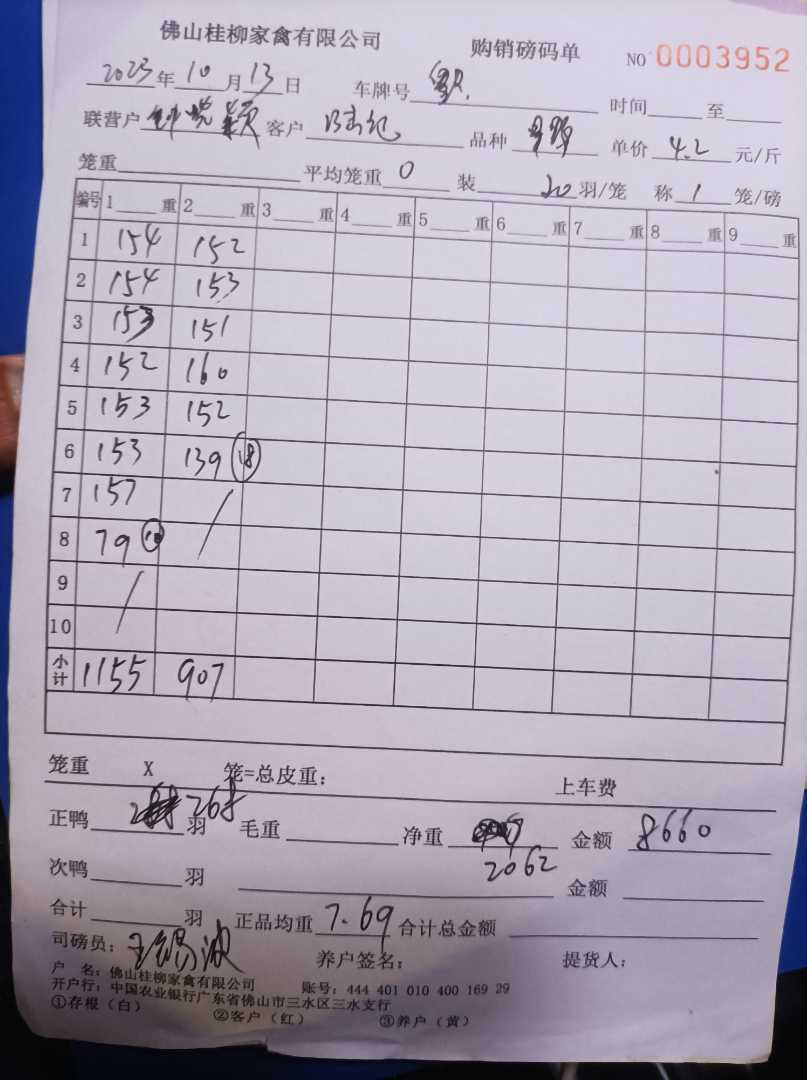 佛山桂柳家禽有限公司 购销磅码单 NO 0003952
2023年10月13日 车牌号 时间 至
联营户 客户 品种 单价 4.2 元/斤
笼重 平均笼重 0 装 20 羽/笼 称 1 笼/磅
编号 1 重 2 重 3 重 4 重 5 重 6 重 7 重 8 重 9 重
1 154 152
2 154 153
3 153 151
4 152 160
5 153 152
6 153 139 18
7 157 /
8 79 10
9 /
10
小计 1155 907
笼重 X 笼=总皮重: 上车费
正鸭 268 羽 毛重 净重 2062 金额 8660
次鸭 羽 金额
合计 羽 正品均重 7.69 合计总金额
司磅员: 养户签名: 提货人:
户 名: 佛山桂柳家禽有限公司 账号: 444 401 010 400 169 29
开户行: 中国农业银行广东省佛山市三水区三水支行
①存根（白） ②客户（红） ③养户（黄）